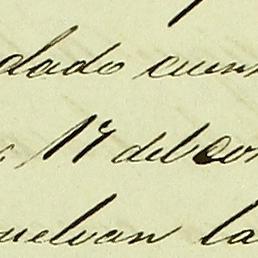 dado cuen
17 del con
uelvan la